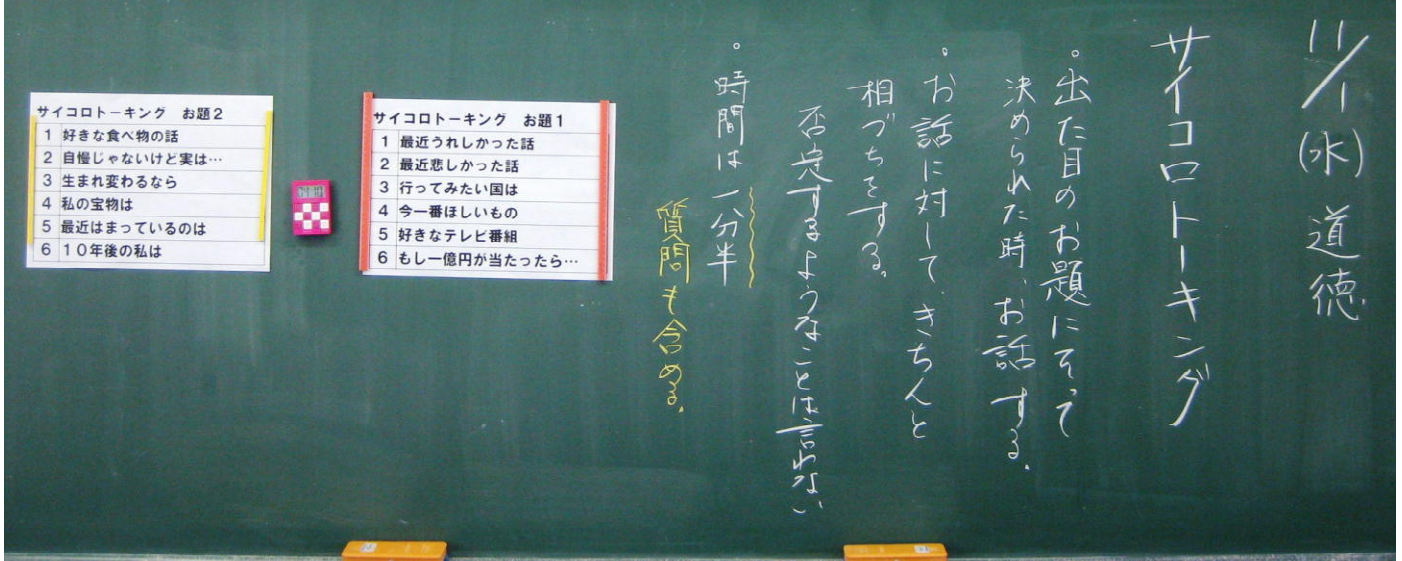 11/1(水) 道徳
サイコロトーキング
。出た目のお題にそって
決められた時、お話する。
。お話に対して、きちんと
相づちをする。
否定するようなことは言わない
。時間は一分半
質問も含める。
サイコロトーキング お題1
1 最近うれしかった話
2 最近悲しかった話
3 行ってみたい国は
4 今一番ほしいもの
5 好きなテレビ番組
6 もし一億円が当たったら…
サイコロトーキング お題2
1 好きな食べ物の話
2 自慢じゃないけど実は…
3 生まれ変わるなら
4 私の宝物は
5 最近はまっているのは
6 10年後の私は